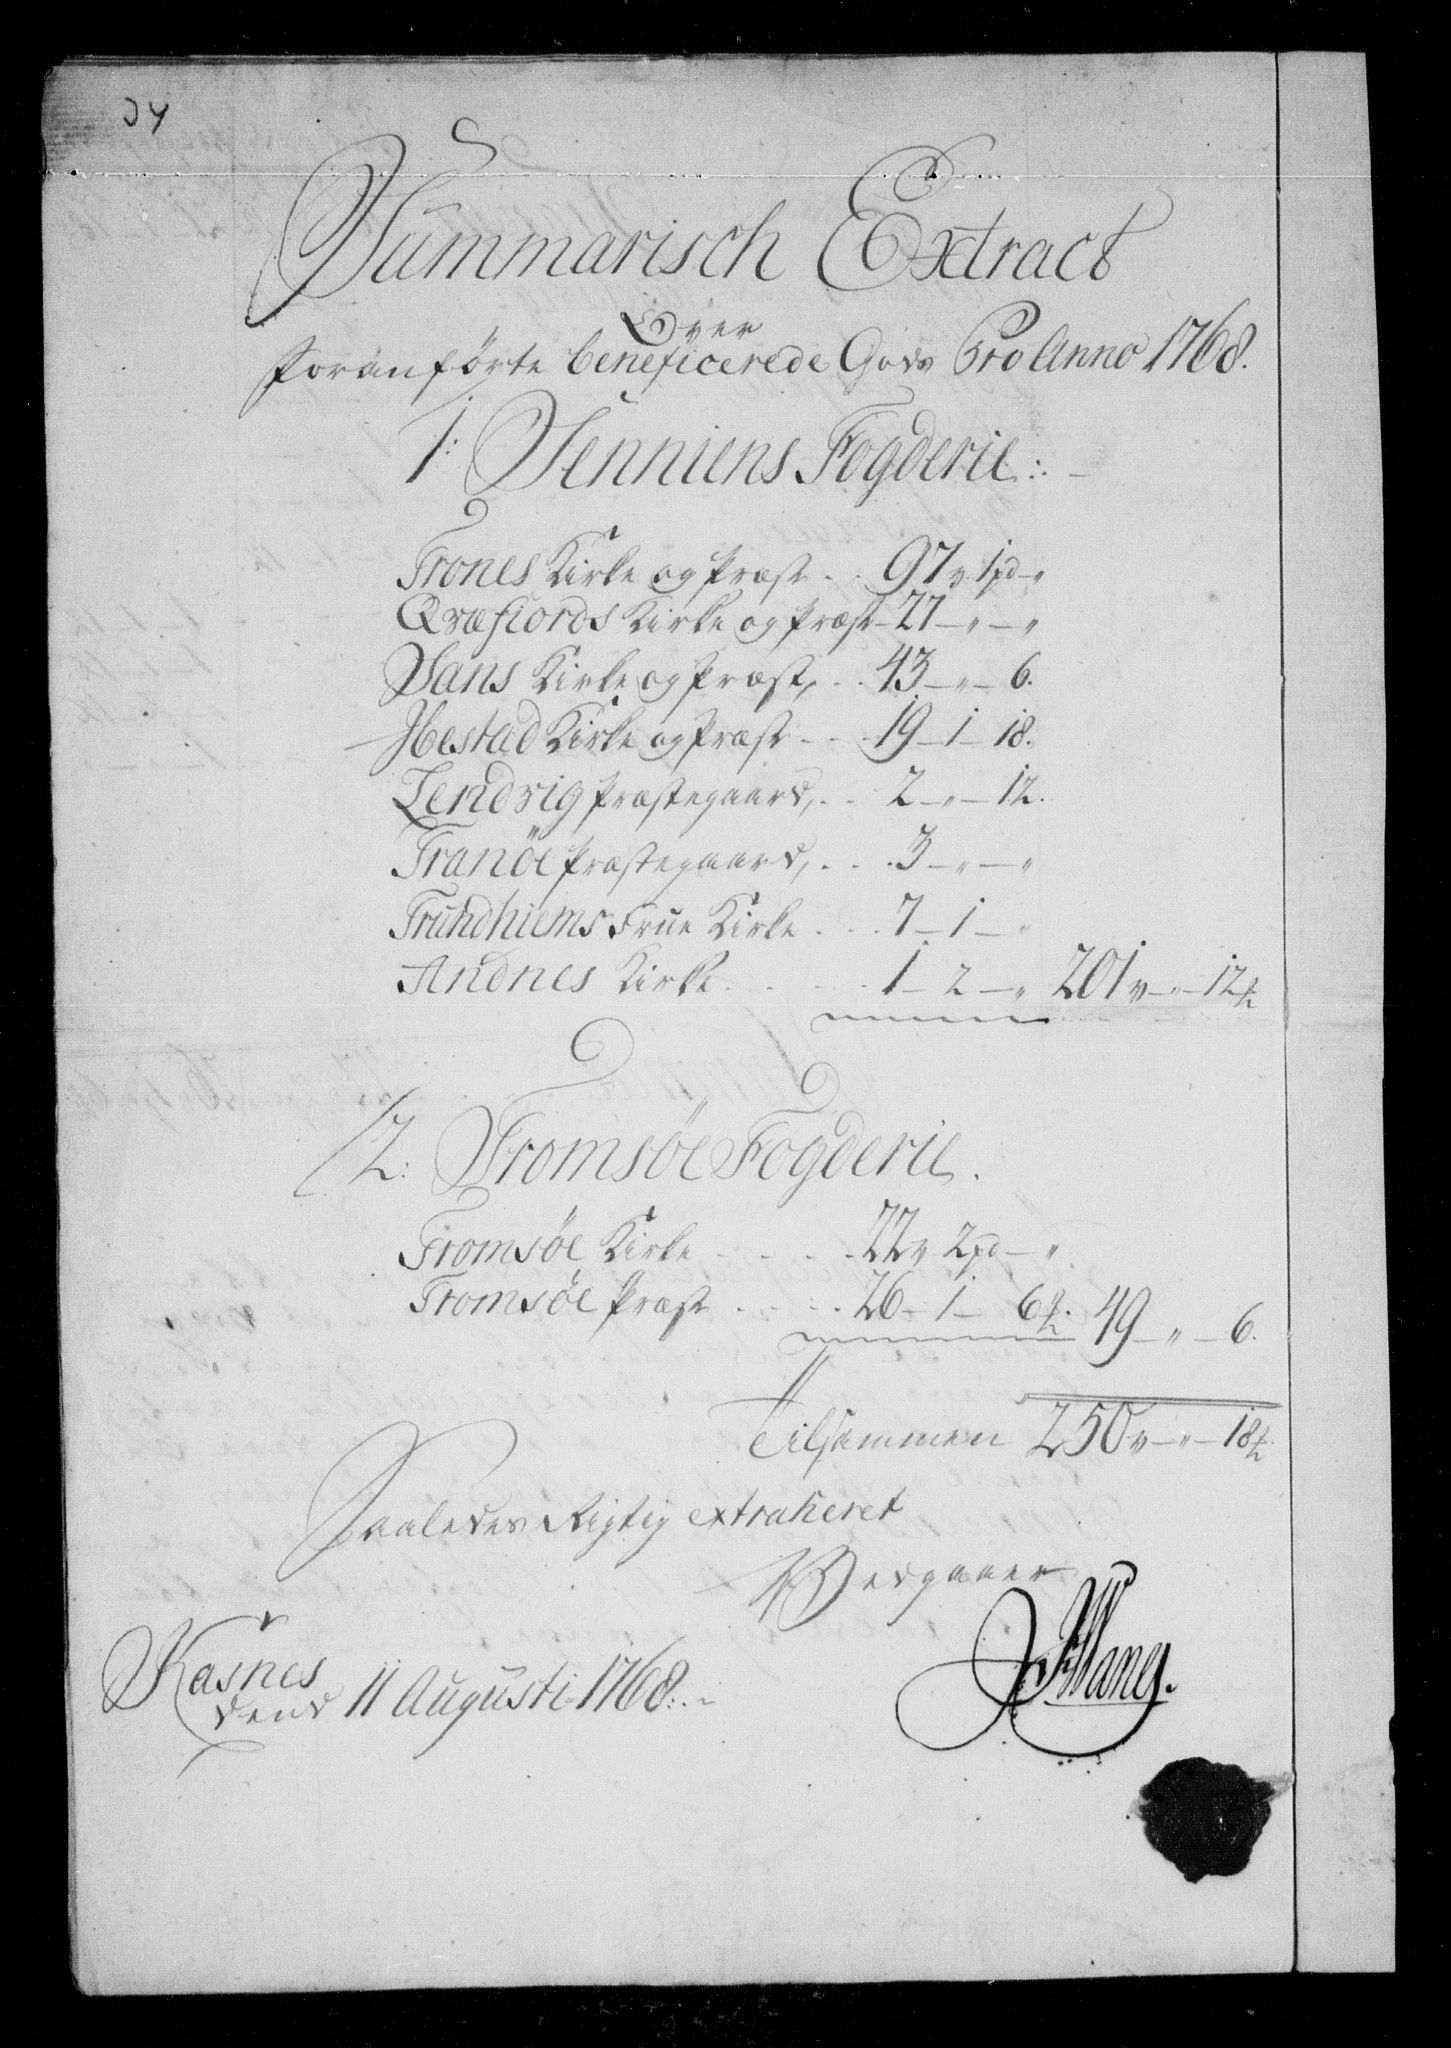 34
Summarisch Extract
Over
foranførte beneficerede Gods Pro Anno 1768.
1: Senniens Fogderie:
Trones Kirke og Præst . . 97 v 1 pd - "
Qvæfiords Kirke og Præst - 27 - " - "
Sans Kirke og Præst, . . 43 - " - 6.
Ibestad Kirke og Præst - . . 19 - 1 - 18.
Lendvig Præstegaard, . . 2 - " - 12.
Tranöe Præstegaard, . . . 3 - " - "
Trundhiems Frue Kirke . . . 7 - 1 - "
Andnes Kirke . . . . 1 - 2 - " 201 v - " - 12
2: Tromsöe Fogderie.
Tromsöe Kirke . . . . 22 v 2 pd - "
Tromsöe Præst . . . . 26 - 1 - 6. 49 - " - 6.
Tilsammen 250 v - " - 18
Saaledes Rigtig extraheret
Kasnes
dend 11 Augusti 1768.